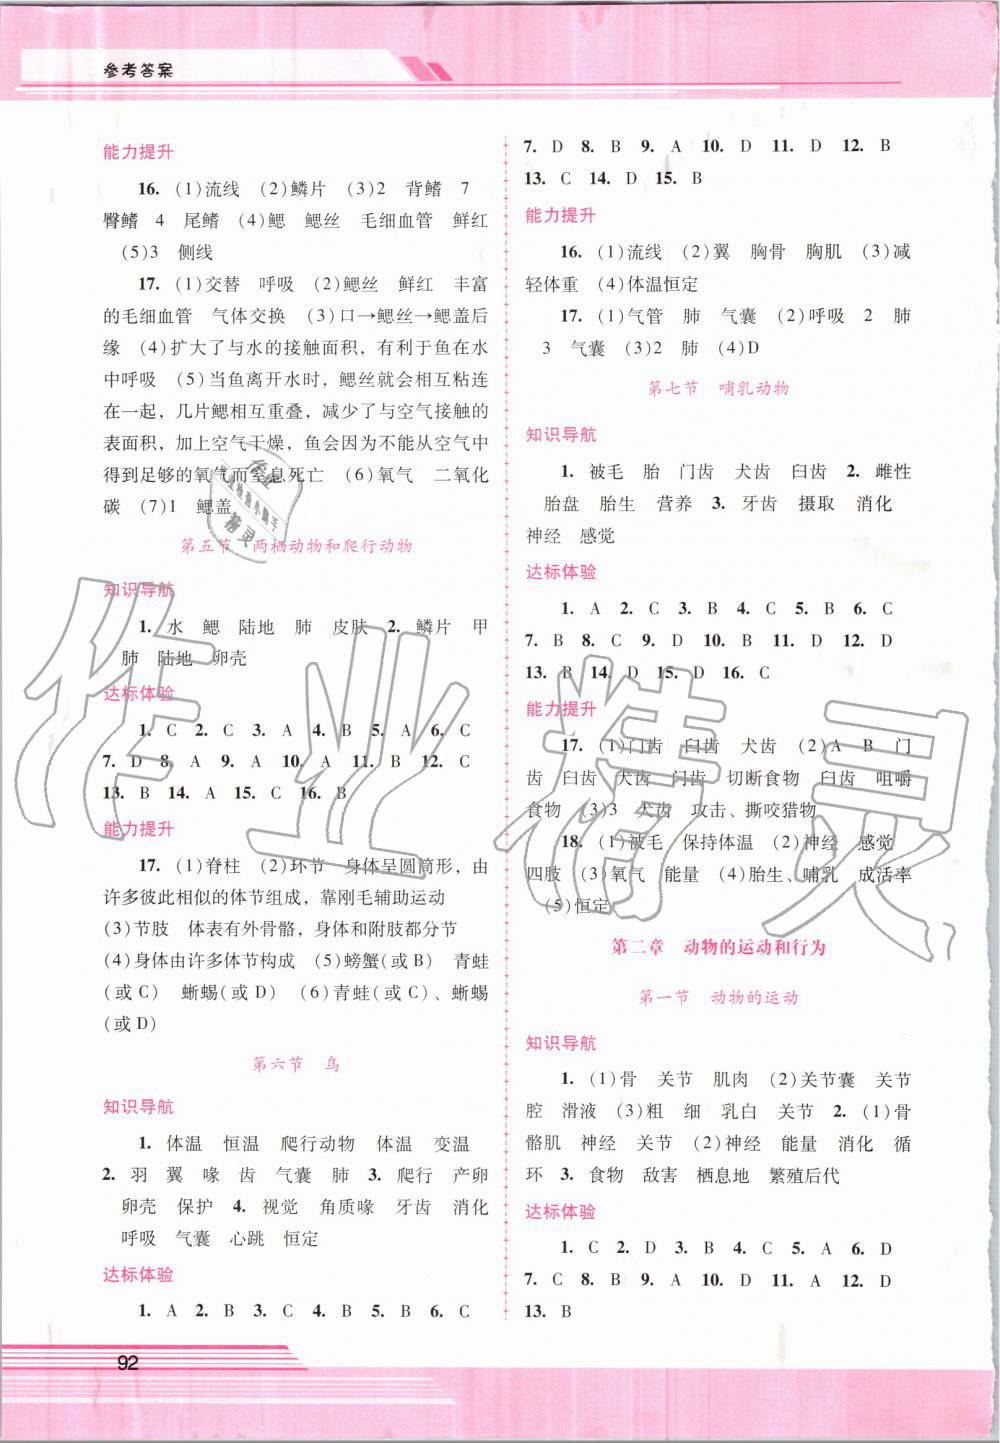 参考答案
能力提升
16. (1)流线 (2)鳞片 (3)2 背鳍 7
臀鳍 4 尾鳍 (4)鳃 鳃丝 毛细血管 鲜红
(5)3 侧线
17. (1)交替 呼吸 (2)鳃丝 鲜红 丰富
的毛细血管 气体交换 (3)口→鳃丝→鳃盖后
缘 (4)扩大了与水的接触面积，有利于鱼在水
中呼吸 (5)当鱼离开水时，鳃丝就会相互粘连
在一起，几片鳃相互重叠，减少了与空气接触的
表面积，加上空气干燥，鱼会因为不能从空气中
得到足够的氧气而窒息死亡 (6)氧气 二氧化
碳 (7)1 鳃盖
第五节 两栖动物和爬行动物
知识导航
1. 水 鳃 陆地 肺 皮肤 2. 鳞片 甲
肺 陆地 卵壳
达标体验
1. C 2. C 3. A 4. B 5. A 6. C
7. D 8. A 9. A 10. A 11. B 12. C
13. B 14. A 15. C 16. B
能力提升
17. (1)脊柱 (2)环节 身体呈圆筒形，由
许多彼此相似的体节组成，靠刚毛辅助运动
(3)节肢 体表有外骨骼，身体和附肢都分节
(4)身体由许多体节构成 (5)螃蟹(或B) 青蛙
(或C) 蜥蜴(或D) (6)青蛙(或C)、蜥蜴
(或D)
第六节 鸟
知识导航
1. 体温 恒温 爬行动物 体温 变温
2. 羽 翼 喙 齿 气囊 肺 3. 爬行 产卵
卵壳 保护 4. 视觉 角质喙 牙齿 消化
呼吸 气囊 心跳 恒定
达标体验
1. A 2. B 3. C 4. B 5. B 6. C
7. D 8. B 9. A 10. D 11. D 12. B
13. C 14. D 15. B
能力提升
16. (1)流线 (2)翼 胸骨 胸肌 (3)减
轻体重 (4)体温恒定
17. (1)气管 肺 气囊 (2)呼吸 2 肺
3 气囊 (3)2 肺 (4)D
第七节 哺乳动物
知识导航
1. 被毛 胎 门齿 犬齿 臼齿 2. 雌性
胎盘 胎生 营养 3. 牙齿 摄取 消化
神经 感觉
达标体验
1. A 2. C 3. B 4. C 5. B 6. C
7. B 8. C 9. D 10. B 11. D 12. D
13. B 14. D 15. D 16. C
能力提升
17. (1)门齿 臼齿 犬齿 (2)A B 门
齿 臼齿 犬齿 门齿 切断食物 臼齿 咀嚼
食物 (3)3 犬齿 攻击、撕咬猎物
18. (1)被毛 保持体温 (2)神经 感觉
四肢 (3)氧气 能量 (4)胎生、哺乳 成活率
(5)恒定
第二章 动物的运动和行为
第一节 动物的运动
知识导航
1. (1)骨 关节 肌肉 (2)关节囊 关节
腔 滑液 (3)粗 细 乳白 关节 2. (1)骨
骼肌 神经 关节 (2)神经 能量 消化 循
环 3. 食物 敌害 栖息地 繁殖后代
达标体验
1. C 2. D 3. B 4. C 5. A 6. D
7. C 8. B 9. A 10. D 11. A 12. D
13. B
92
作业精灵